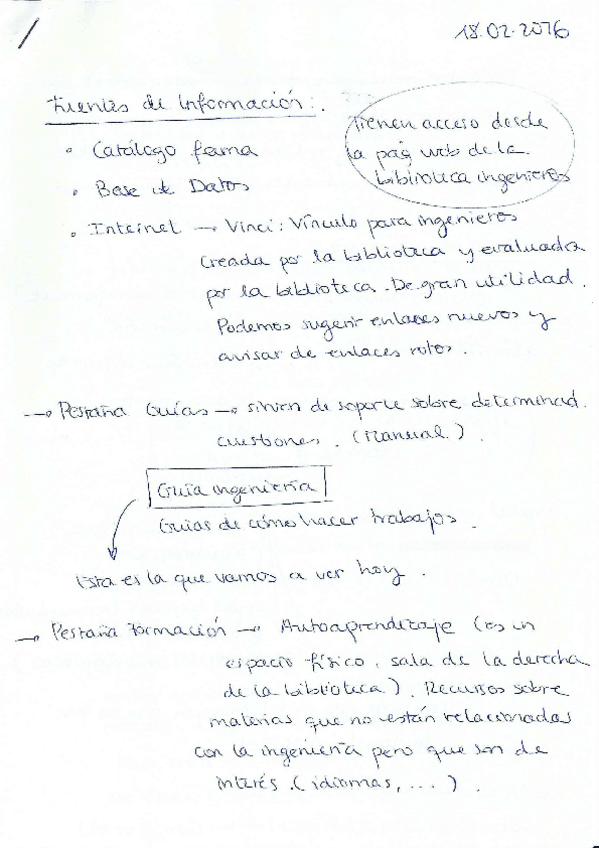 18.02.2016
Fuentes de Información:.
Tienen acceso desde
la pág web de la
biblioteca ingenieros
• Catálogo fama
• Base de Datos
• Internet → Vinci: Vínculo para ingenieros
creada por la biblioteca y evaluada
por la biblioteca. De gran utilidad.
Podemos sugerir enlaces nuevos y
avisar de enlaces rotos.
→ Pestaña Guías → sirven de soporte sobre determinad.
cuestiones. (Manual.).
Guía ingeniería
Guías de cómo hacer trabajos.
Esta es la que vamos a ver hoy.
→ Pestaña formación → Autoaprendizaje (es un
espacio físico, sala de la derecha
de la biblioteca). Recursos sobre
materias que no están relacionadas
con la ingeniería pero que son de
interés. (idiomas, ...).